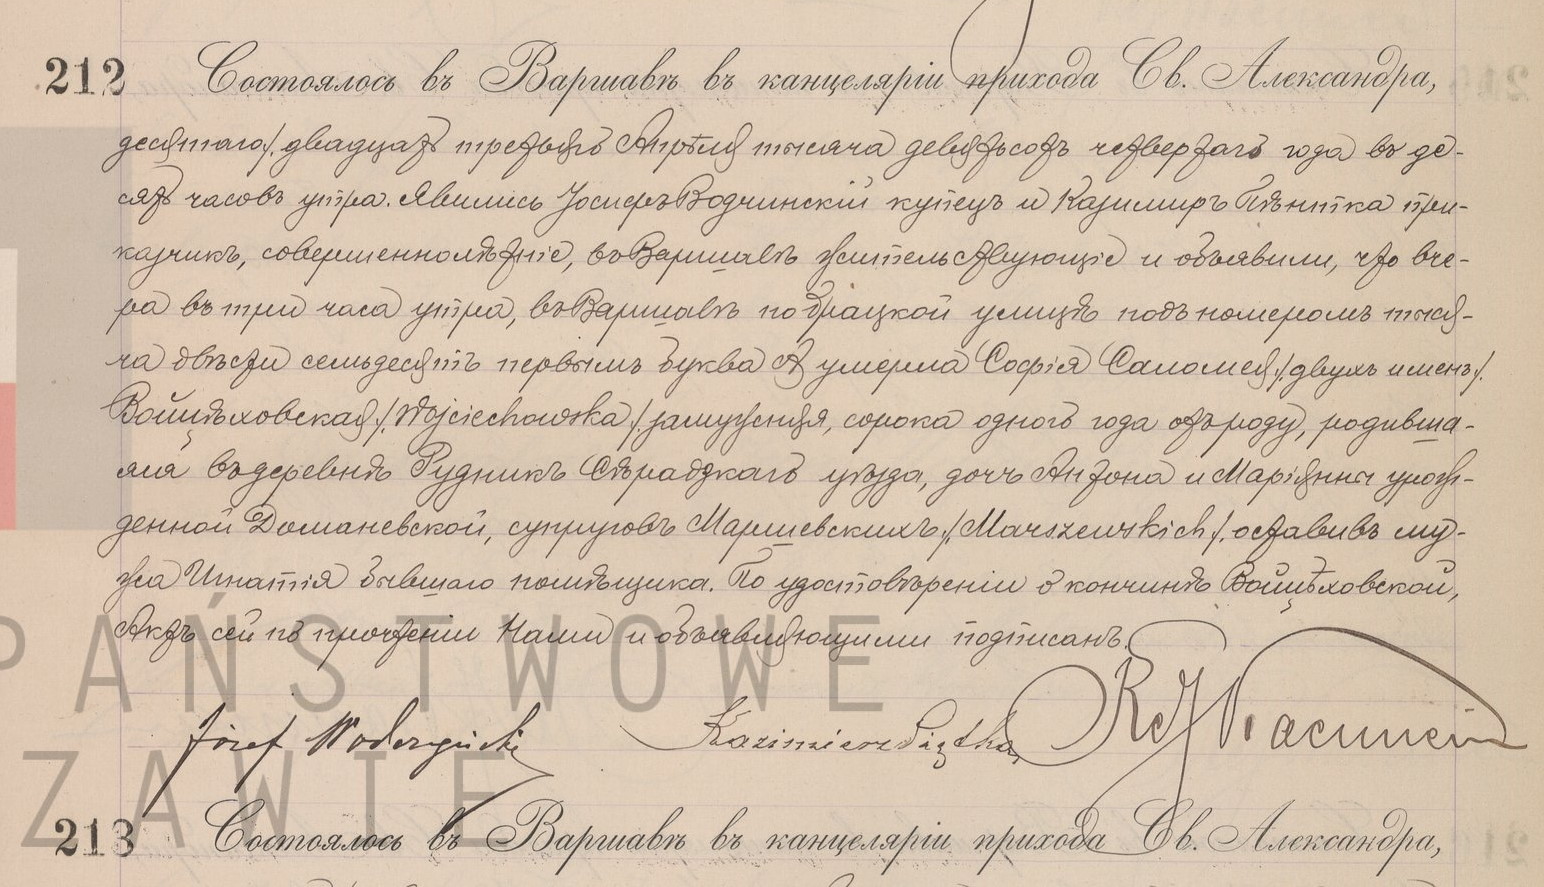 212 Состоялось въ Варшавѣ въ канцеляріи прихода Св. Александра,
десятаго /двадцать третьяго Апрѣля тысяча девятьсотъ четвертаго года въ де-
сять часовъ утра. Явились Іосифъ Водчинскій купецъ и Казимиръ при-
казчикъ, совершеннолѣтніе, въ Варшавѣ жительствующіе и объявили, что вче-
ра въ три часа утра, въ Варшавѣ по Брацкой улицѣ подъ номеромъ тыся-
ча двѣсти семьдесятъ первымъ буква А умерла Софія Саломея /двухъ именъ/
Войцѣховская /Wojciechowska/ замужняя, сорока одного года отъ роду, родивша-
яся въ деревнѣ Рудникъ Сѣрадзкаго уѣзда, дочь Антона и Маріянны урож-
денной Доманевской, супруговъ Маршевскихъ /Marszewskich/ оставивъ му-
жа Игнатія бывшаго помѣщика. По удостовѣреніи о кончинѣ Войцѣховской,
Актъ сей по прочтеніи Нами и объявляющими подписанъ.
Józef Woderzyński Kazimierz
PAŃSTWOWE
ZAWIE
213 Состоялось въ Варшавѣ въ канцеляріи прихода Св. Александра,